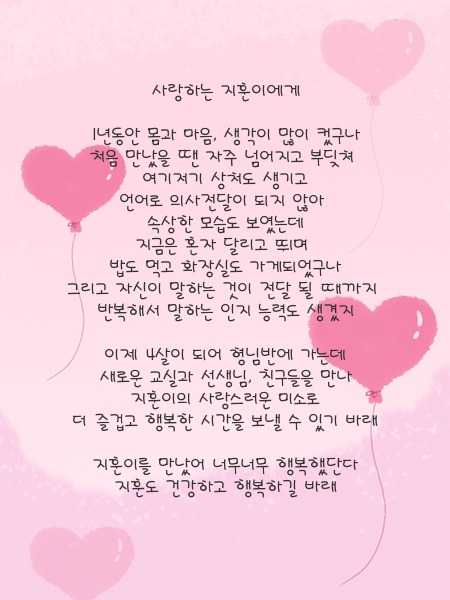 사랑하는 지훈이에게
1년동안 몸과 마음, 생각이 많이 컸구나
처음 만났을 땐 자주 넘어지고 부딪쳐
여기저기 상처도 생기고
언어로 의사전달이 되지 않아
속상한 모습도 보였는데
지금은 혼자 달리고 뛰며
밥도 먹고 화장실도 가게되었구나
그리고 자신이 말하는 것이 전달 될 때까지
반복해서 말하는 인지 능력도 생겼지
이제 4살이 되어 형님반에 가는데
새로운 교실과 선생님, 친구들을 만나
지훈이의 사랑스러운 미소로
더 즐겁고 행복한 시간을 보낼 수 있기 바래
지훈이를 만났어 너무너무 행복했단다
지훈도 건강하고 행복하길 바래